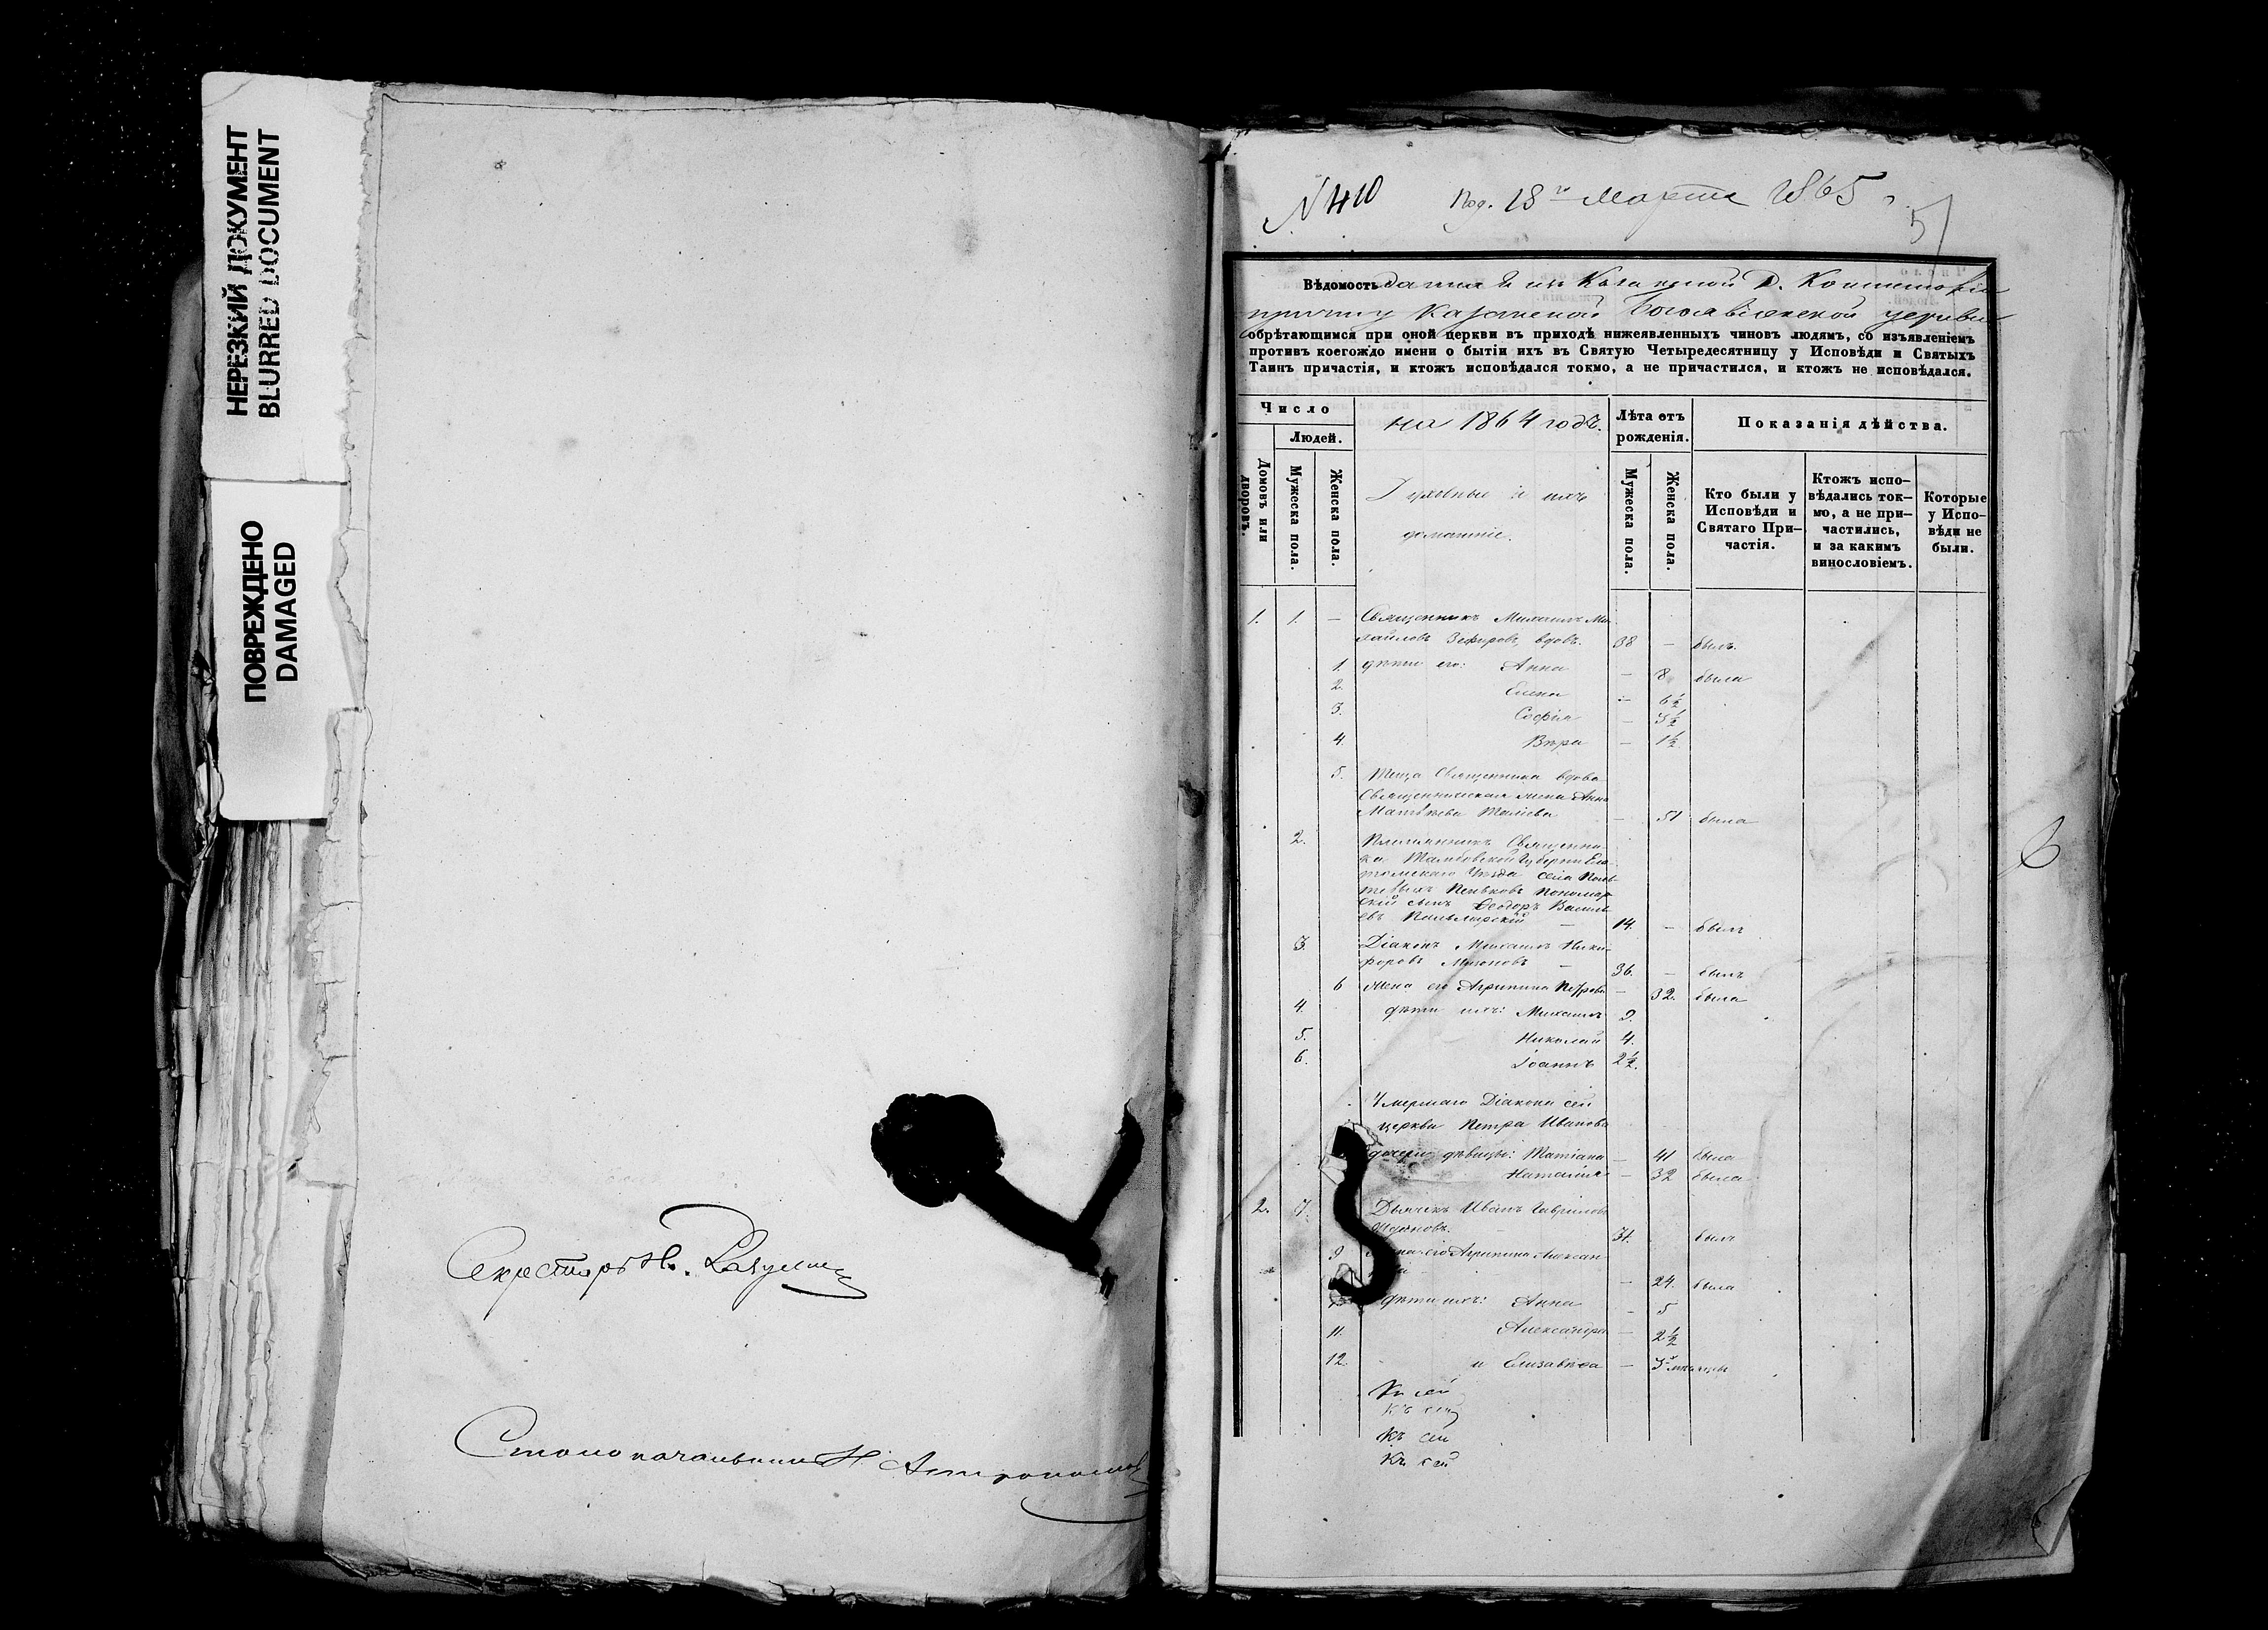 НЕРЕЗКИЙ ДОКУМЕНТ
BLURRED DOCUMENT
ПОВРЕЖДЕНО
DAMAGED
Секретарь Н.
Столоначальник Н.
N 410 Под. 18го Марта 1865 г.
51
Вѣдомость данная изъ Казанской Д. Консисторіи
причту Казанской Богоявленской церкви
обрѣтающимся при оной церкви въ приходѣ нижеявленныхъ чиновъ людямъ, со изъявленіемъ
противъ коегождо имени о бытіи ихъ въ Святую Четыредесятницу у Исповѣди и Святыхъ
Таинъ причастія, и ктожъ исповѣдался токмо, а не причастился, и ктожъ не исповѣдался.
Число
на 1864 годъ.
Лѣта отъ рожденія.
Показанія дѣйства.
Людей.
Домовъ или дворовъ.
Мужеска пола.
Женска пола.
Духовные и ихъ
домашніе.
Мужеска пола.
Женска пола.
Кто были у Исповѣди и Святаго Причастія.
Ктожъ исповѣдались токмо, а не причастились, и за какимъ винословіемъ.
Которые у Исповѣди не были.
1. 1. — Священникъ Михаилъ Ми-
хайловъ Зефировъ, вдовъ. 38 — былъ.
1. дѣти его: Анна — 8 была
2. Елена — 6½
3. Софія — 3½
4. Вѣра — 1½
5. Теща Священника вдова
Священническая жена Анна
Матвѣева — 51 была
2. Племянникъ Священни-
ка Тамбовской Губерніи Ела-
томскаго Уѣзда села
Пономар-
скій сынъ Ѳеодоръ Василь-
евъ 14. — былъ
3. Діаконъ Михаилъ Ники-
форовъ — 36. — былъ
6 жена его Агрипина Петрова — 32. была
4. дѣти ихъ: Михаилъ 9.
5. Николай 4.
6. Іоаннъ 2½.
Умершаго Діакона сей
церкви Петра Иванова
дочери дѣвицы: Татіана — 41 была
Наталія — 32 была
2. 7. Дьячекъ Иванъ Гавриловъ
31. былъ
9 его Агрипина Алексан-
— 24. была
дѣти ихъ: Анна — 5
11. Александра — 2½
12. и Елизавета —
Къ сей
Къ сей
Къ сей
Къ сей
6